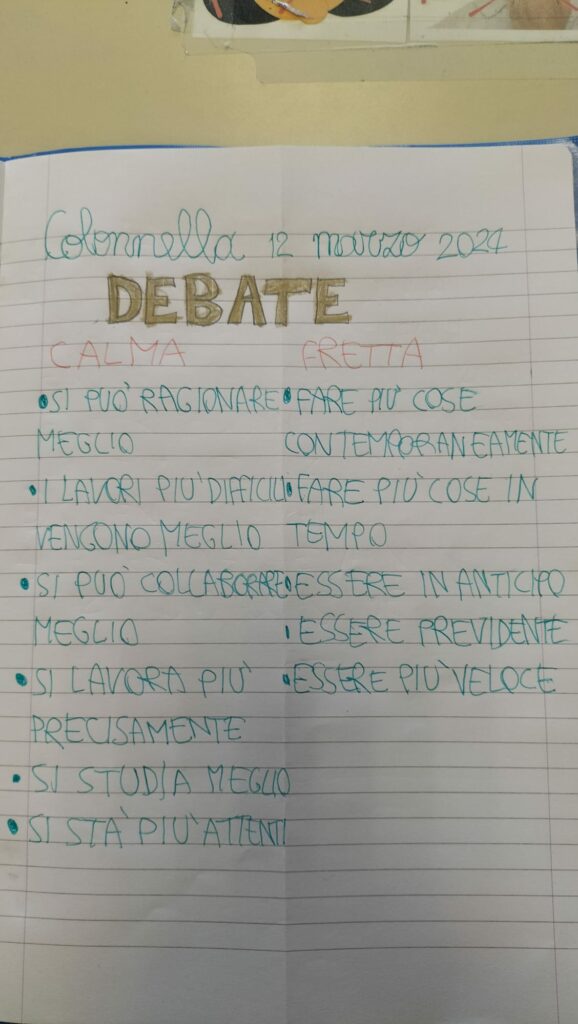 Colonnella 12 marzo 2024
DEBATE
CALMA
• SI PUÒ RAGIONARE
MEGLIO
• I LAVORI PIÙ DIFFICILI
VENGONO MEGLIO
• SI PUÒ COLLABORARE
MEGLIO
• SI LAVORA PIÙ
PRECISAMENTE
• SI STUDIA MEGLIO
• SI STÀ PIÙ ATTENTI
FRETTA
• FARE PIÙ COSE
CONTEMPORANEAMENTE
• FARE PIÙ COSE IN
TEMPO
• ESSERE IN ANTICIPO
• ESSERE PREVIDENTE
• ESSERE PIÙ VELOCE